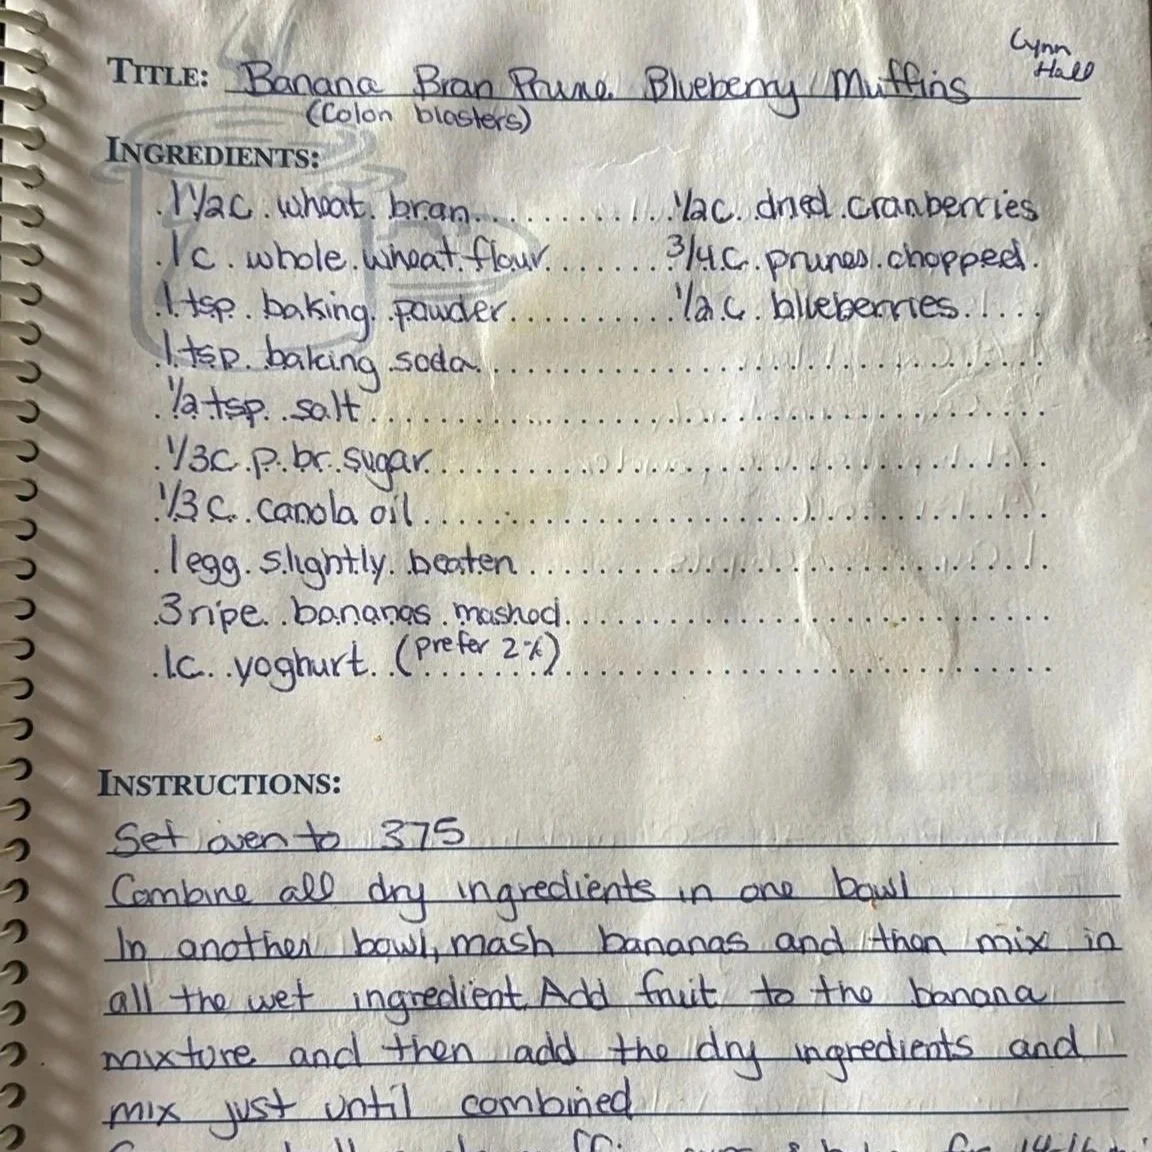 Lynn
Hall
TITLE: Banana Bran Prune Blueberry Muffins
(Colon blasters)
INGREDIENTS:
1 1/2 c. wheat bran
1 c. whole wheat flour
1 tsp. baking powder
1 tsp. baking soda
1/2 tsp. salt
1/3 c. p. br. sugar
1/3 c. canola oil
1 egg slightly beaten
3 ripe bananas mashed
1 c. yoghurt (prefer 2%)
1/2 c. dried cranberries
3/4 c. prunes chopped
1/2 c. blueberries
INSTRUCTIONS:
Set oven to 375
Combine all dry ingredients in one bowl
In another bowl, mash bananas and then mix in
all the wet ingredient. Add fruit to the banana
mixture and then add the dry ingredients and
mix just until combined